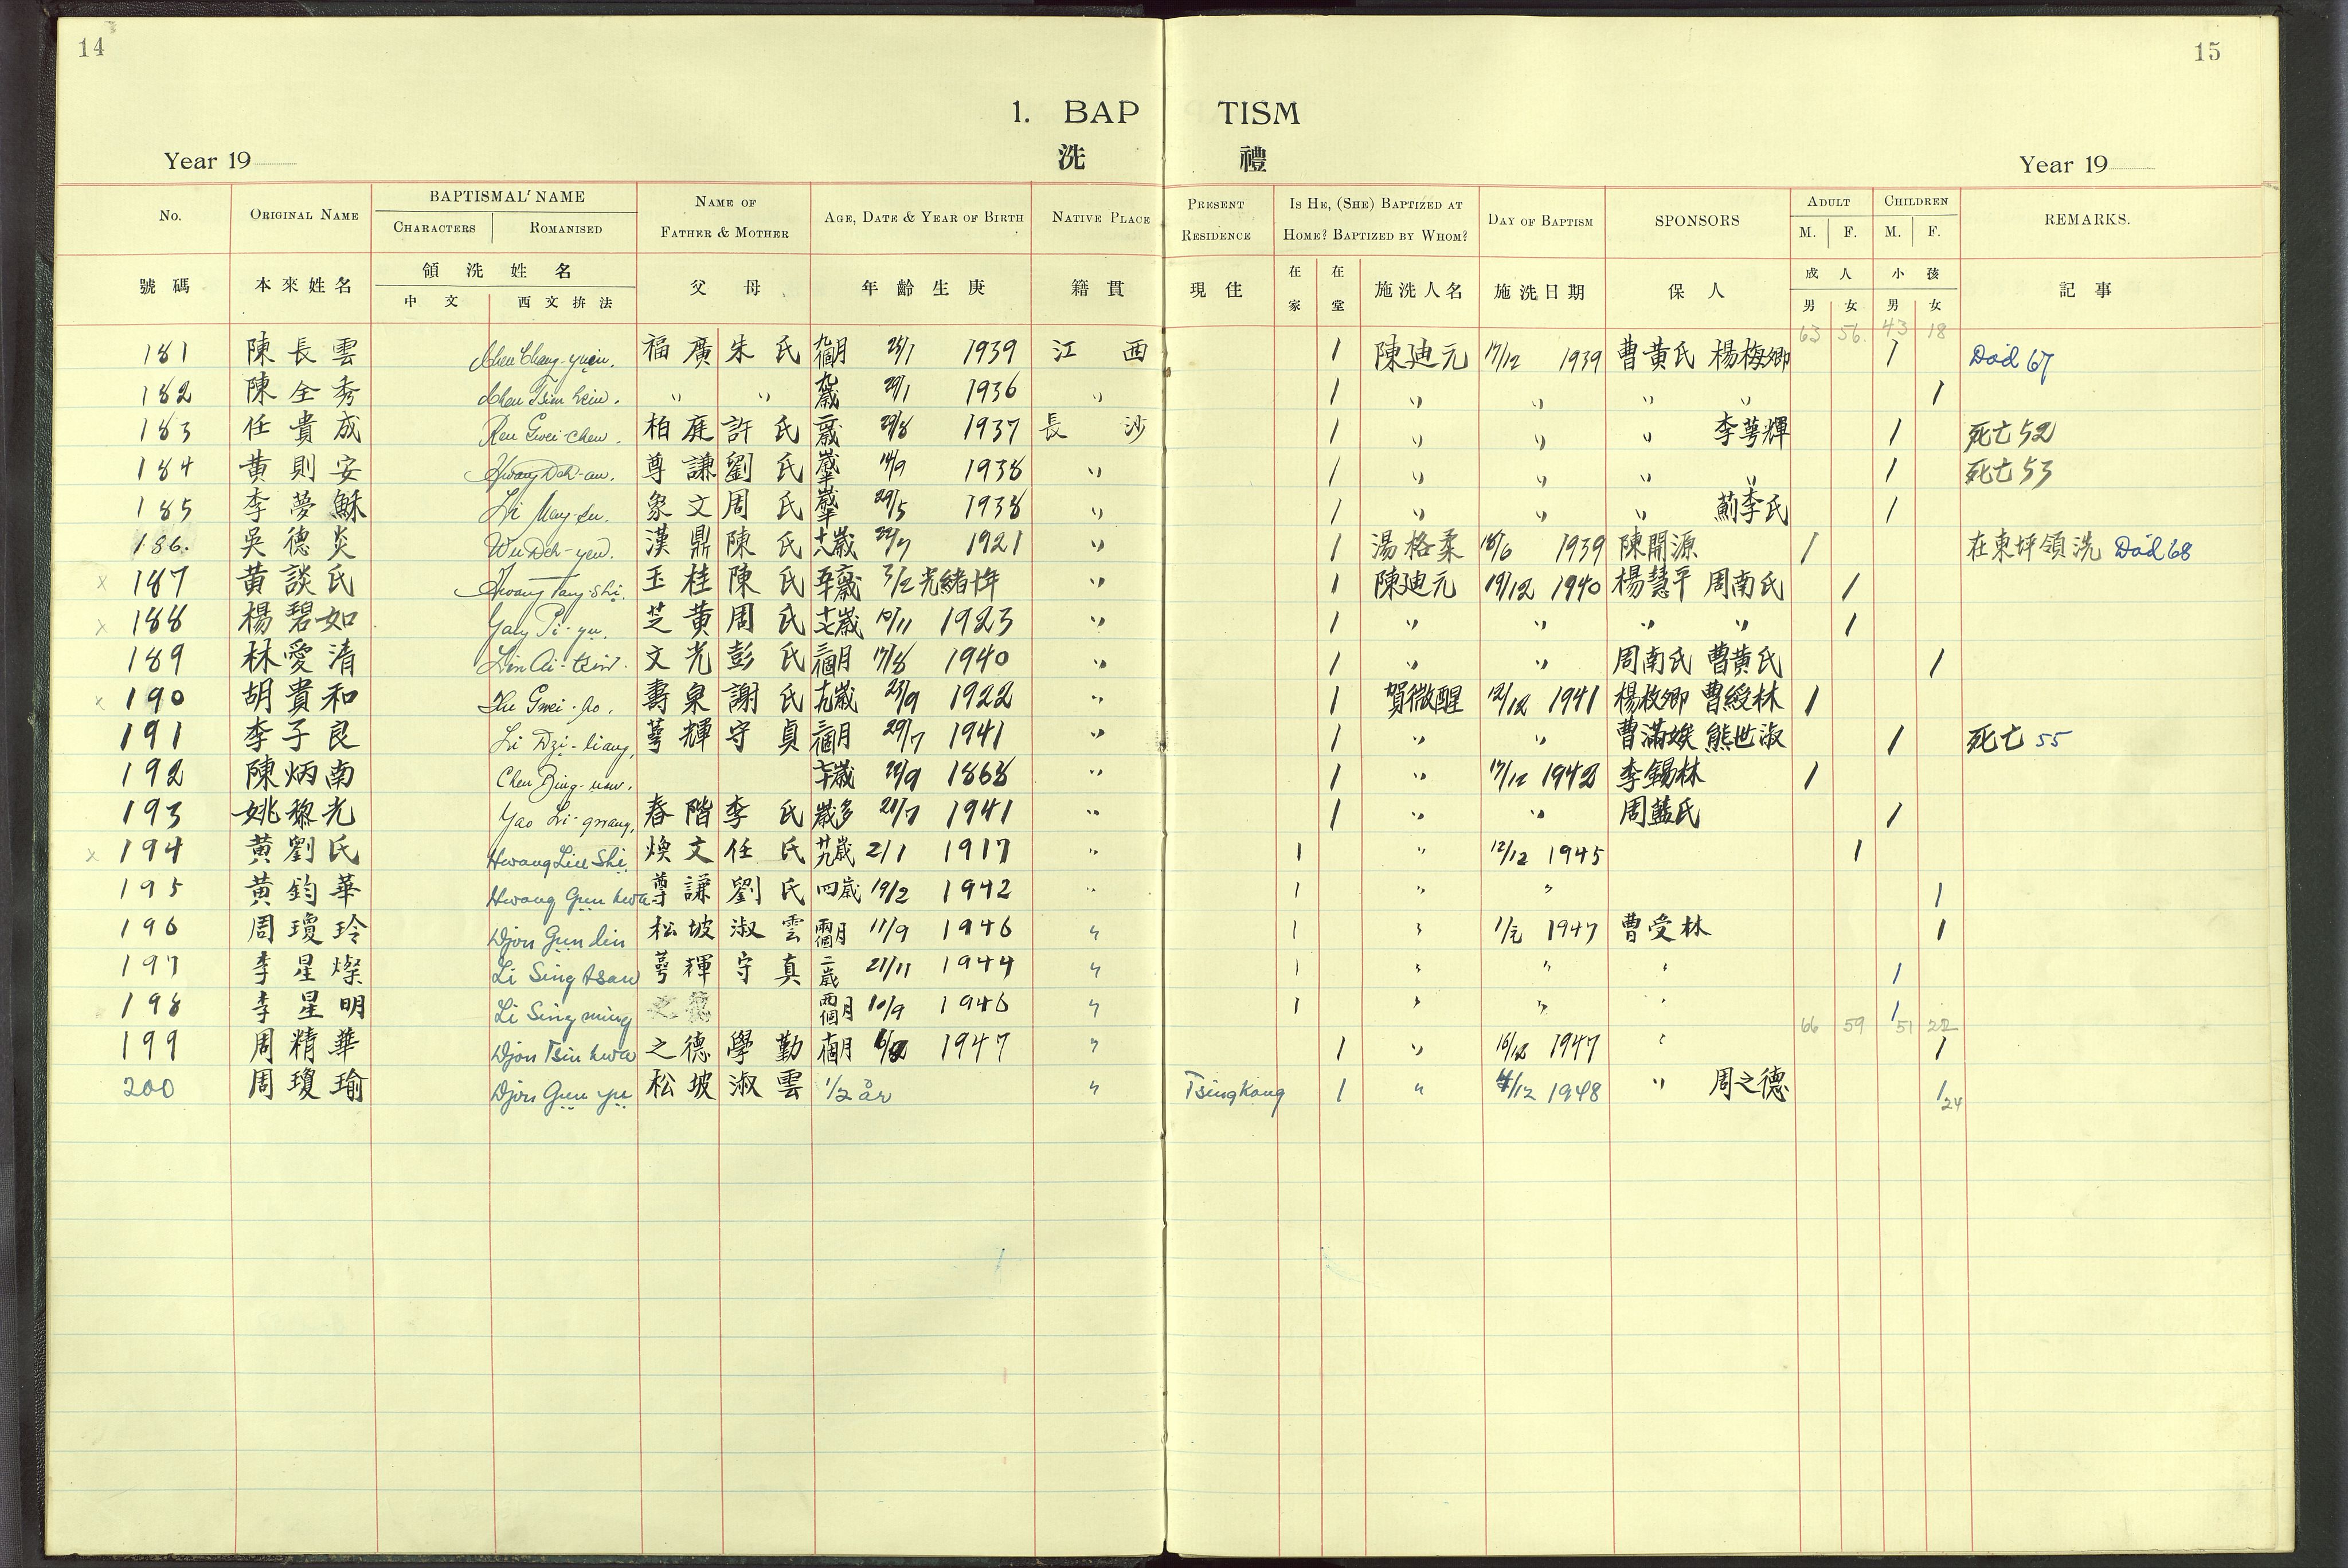 14
15
1. BAP TISM
Year 19 洗 禮 Year 19
No. ORIGINAL NAME BAPTISMAL NAME NAME OF FATHER & MOTHER AGE, DATE & YEAR OF BIRTH NATIVE PLACE PRESENT RESIDENCE IS HE, (SHE) BAPTIZED AT HOME? BAPTIZED BY WHOM? DAY OF BAPTISM SPONSORS ADULT CHILDREN REMARKS.
CHARACTERS ROMANISED M. F. M. F.
號碼 本來姓名 領洗姓名 父母 年齡生庚 籍貫 現住 在家 在堂 施洗人名 施洗日期 保人 成人 小孩 記事
中文 西文拚法 男 女 男 女
63 56. 43 18
181 陳長雲 Chen Chang-yuin. 福廣 朱氏 九個月 1939 江西 1 陳廸元 17/12 1939 曹黃氏 楊梅卿 1 Död 67
182 陳全秀 〃 〃 九歲 1936 〃 1 〃 〃 〃 〃 1
183 任貴成 Ren Gwei-chen. 柏庭 許氏 1937 長沙 1 〃 〃 〃 李萼輝 1 死亡 52
184 黃則安 Hwang Deh-an. 尊謙 劉氏 1938 〃 1 〃 〃 〃 〃 1 死亡 53
185 李夢穌 Li 象文 周氏 29/5 1938 〃 1 〃 〃 〃 薊李氏 1
186. 吳德炎 Wu Deh-yen. 漢鼎 陳氏 十八歲 1921 〃 1 湯格柔 18/6 1939 陳開源 1 在東坪領洗 Död 68
x 187 黃談氏 Hwang Tang-shi. 玉桂 陳氏 3/2 光緒十年 〃 1 陳廸元 19/12 1940 楊慧平 周南氏 1
x 188 楊碧如 Yang Pi-yu. 芝黃 周氏 十七歲 10/11 1923 〃 1 〃 〃 〃 〃 1
189 林愛清 Lin Ai-tsin. 文光 彭氏 三個月 17/8 1940 〃 1 〃 〃 周南氏 曹黃氏 1
x 190 胡貴和 Hu Gwei-ho. 壽泉 謝氏 十九歲 23/9 1922 〃 1 賀微醒 12/12 1941 楊枚卿 曹綬林 1
191 李子良 Li Dzi-liang, 萼輝 守貞 三個月 29/7 1941 〃 1 〃 〃 曹滿娭 熊世淑 1 死亡 55
192 陳炳南 Chen Bing-nan. 七十歲 22/9 1868 〃 1 〃 17/12 1942 李錫林 1
193 姚黎光 Yao Li-gwang. 春階 李氏 歲多 21/7 1941 〃 1 〃 〃 周藍氏 1
x 194 黃劉氏 Hwang Liu Shi 煥文 任氏 廿九歲 2/1 1917 〃 1 〃 12/12 1945 1
195 黃鈞華 Hwang Gün hwa 尊謙 劉氏 四歲 19/2 1942 〃 1 〃 〃 1
196 周瓊玲 Djou Gün lin 松坡 淑雲 兩個月 11/9 1946 〃 1 〃 1947 曹受林 1
197 李星燦 Li Sing tsan 萼輝 守真 二歲 21/11 1944 〃 1 〃 〃 〃 1
198 李星明 Li Sing ming 兩個月 10/9 1946 〃 1 〃 〃 〃 1
66 59 51 22
199 周精華 Djou Tsin hwa 之德 學勤 1947 〃 1 〃 16/12 1947 〃 1
200 周瓊瑜 Djou Gün yü 松坡 淑雲 1/2 år 〃 Tsingkang 1 〃 1948 〃 周之德 1 24